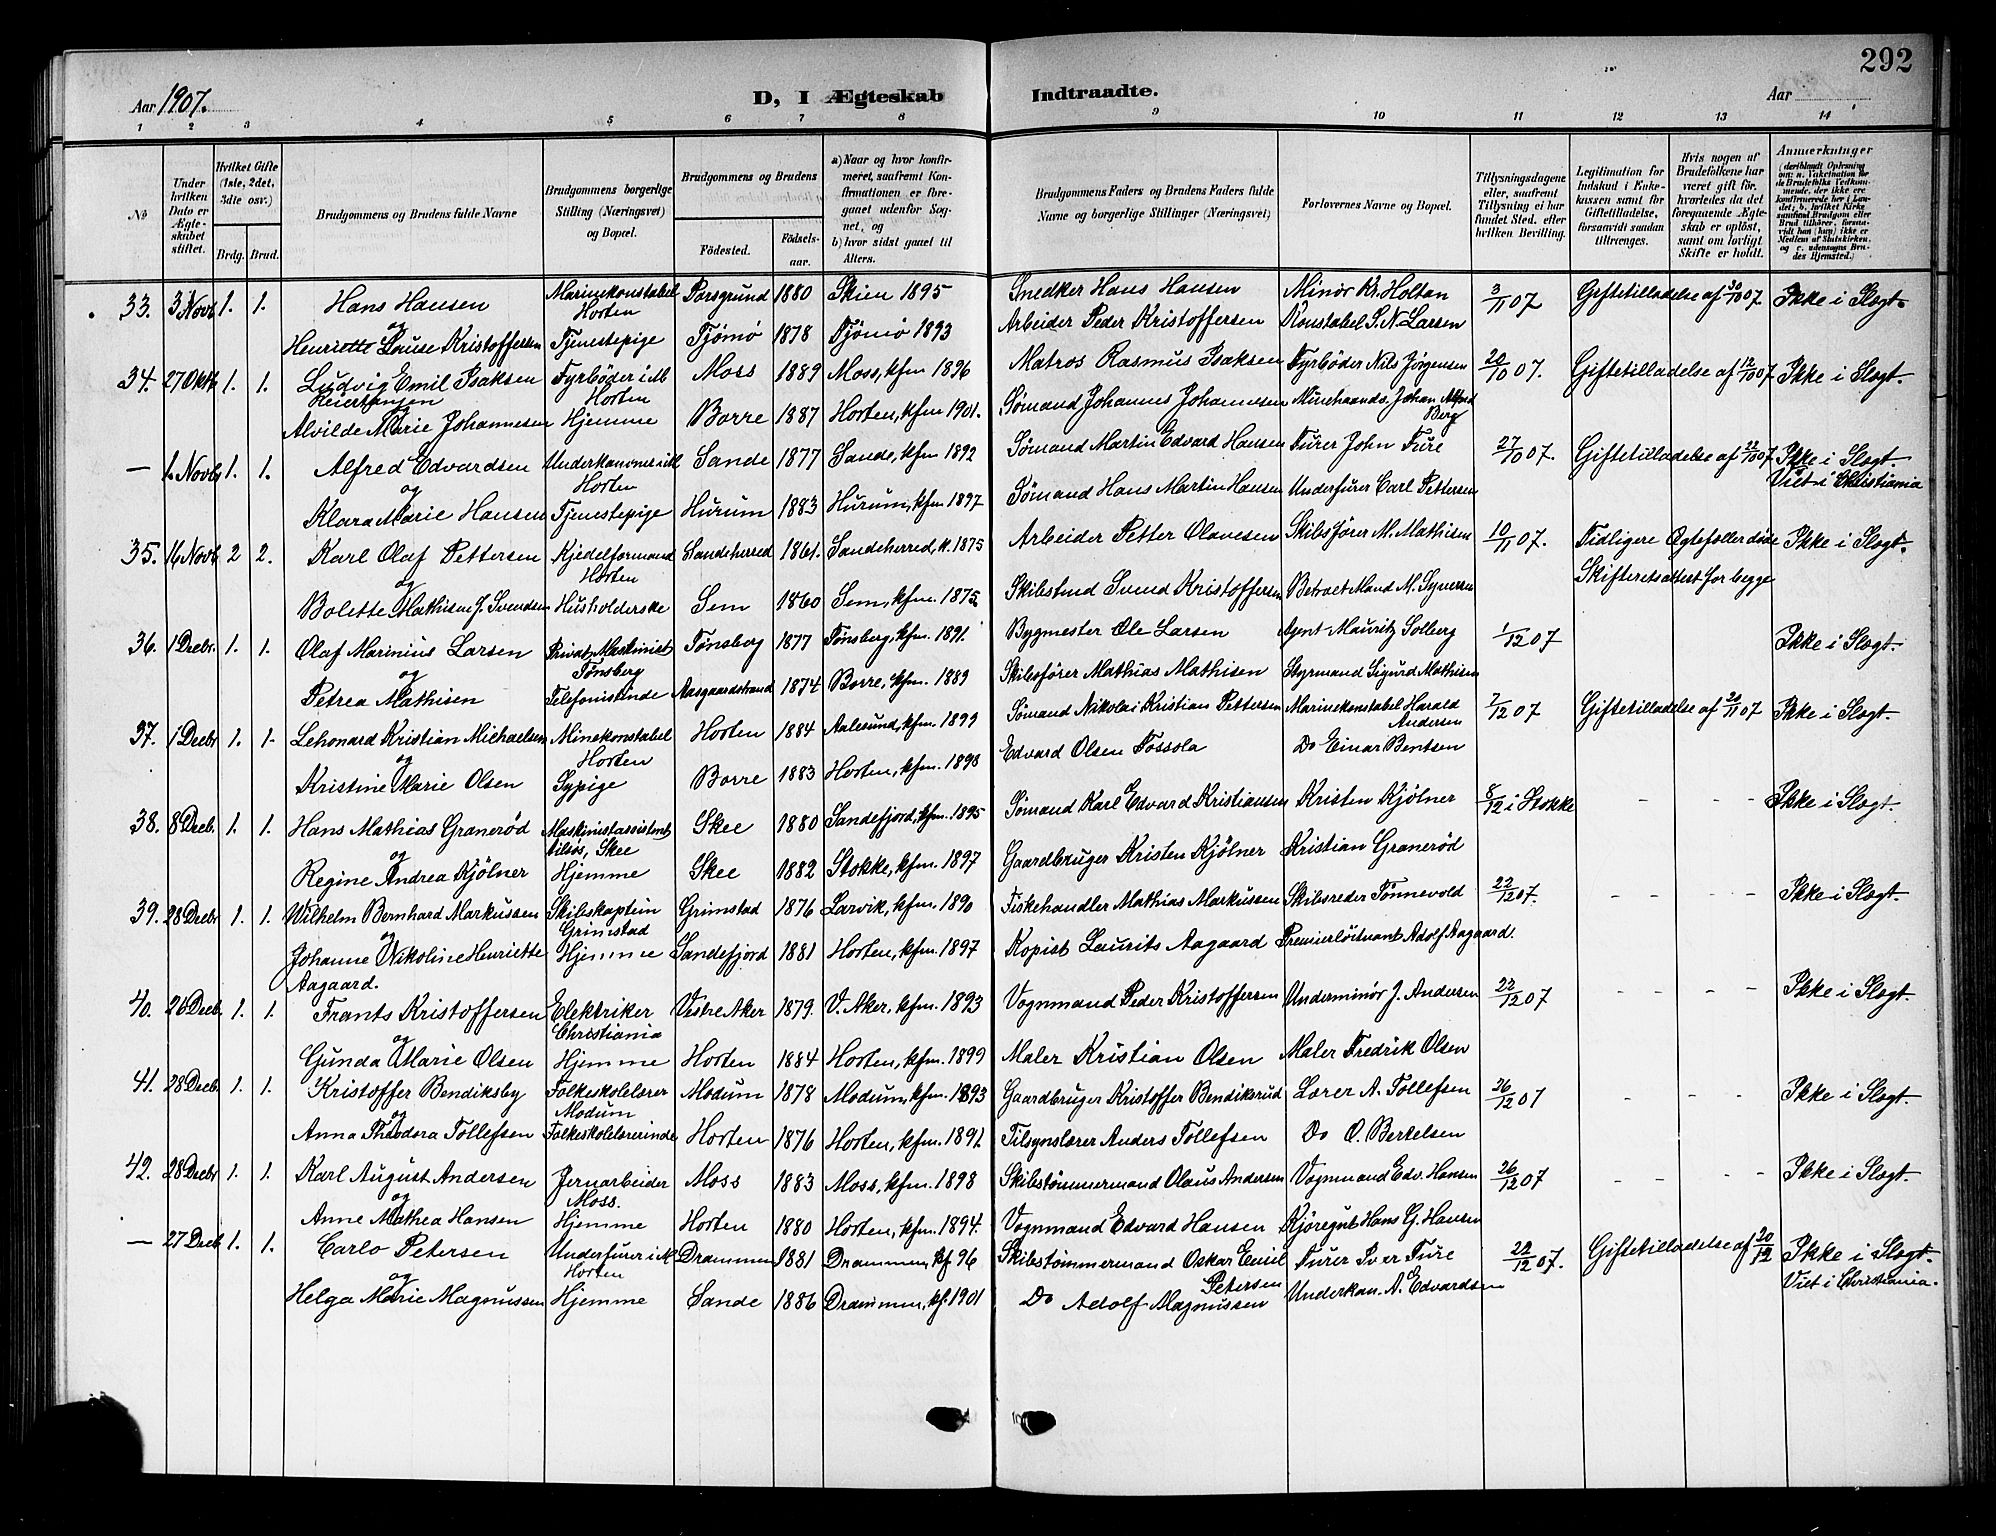 292
Aar 1907. D, I Ægteskab Indtraadte. Aar
1 2 3 4 5 6 7 8 9 10 11 12 13 14
№
Under hvilken Dato er Ægteskabet stiftet.
Hvilket Gifte (1ste, 2det, 3die osv.)
Brdg. Brud.
Brudgommens og Brudens fulde Navne
Brudgommens borgerlige Stilling (Næringsvei) og Bopæl.
Brudgommens og Brudens
Födested. Födsels-aar.
a) Naar og hvor konfirmeret, saafremt Konfirmationen er foregaaet udenfor Sognet, og b) hvor sidst gaaet til Alters.
Brudgommens Faders og Brudens Faders fulde Navne og borgerlige Stillinger (Næringsvei)
Forlovernes Navne og Bopæl.
Tillysningsdagene eller, saafremt Tillysning ei har fundet Sted, efter hvilken Bevilling.
Legitimation for Indskud i Enkekassen samt for Giftetilladelse, forsaavidt saadan tiltrænges.
Hvis nogen af Brudefolkene har været gift för, hvorledes da det foregaaende Ægteskab er oplöst, samt om lovligt Skifte er holdt.
Anmerkninger (deriblandt Oplysning om: a. Vakcination for de Brudefolks Vedkommende, der ikke ere konfirmerede her i Landet; b. hvilket Kirkesamfund Brudgom eller Brud tilhører, forsavidt han (hun) ikke er Medlem af Statskirken, og c. udensogns Brudes Hjemsted.)
33. 3 Novb. 1. 1. Hans Hansen Marinekonstabel Porsgrund 1880 Skien 1895 Snedker Hans Hansen Minör Kr. Holtan 3/11 07 Giftetilladelse af 30/10 07 Ikke i Slægt.
og Horten
Henriette Louise Kristoffersen Tjenestepige Tjömö 1878 Tjömö 1893 Arbeider Peder Kristoffersen Konstabel S. N. Larsen
34. 27 Oktb. 1. 1. Ludvig Emil Isaksen Fyrböder i M Moss 1889 Moss, kfm 1896 Matros Rasmus Isaksen Fyrböder Nils Jörgensen 20/10 07. Giftetilladelse af 12/10 07 Ikke i Slægt.
Reiertangen Horten
Alvilde Marie Johannesen Hjemme Borre 1887 Horten, kfm 1901. Sömand Johannes Johannesen Minehaandv. Johan Alfred Berg
— 1 Novb. 1. 1. Alfred Edvardsen Underkanoner i M Sande 1877 Sande, kfm 1892 Sömand Martin Edvard Hansen Furer John Fure 27/10 07. Giftetilladelse af 22/10 07 Ikke i Slægt.
og Horten Viet i Christiania
Klara Marie Hansen Tjenestepige Hurum 1883 Hurum, kfm 1897 Sömand Hans Martin Hansen Underfurer Carl Pettersen
35. 16 Novb. 2 2. Karl Olaf Pettersen Kjedelformand Sandeherred 1861. Sandeherred, k. 1875 Arbeider Petter Olavesen Skibsförer M. Mathisen 10/11 07. Tidligere Ægtefæller döde Ikke i Slægt.
og Horten Skifteretsattest for begge
Bolette Mathisen f. Svendsen Husholderske Sem 1860 Sem, kfm. 1875 Skibstmd Svend Kristoffersen Betroet Mand M. Syversen
36. 1 Decbr. 1. 1. Olaf Marinius Larsen Privat Maskinist Tönsberg 1877 Tönsberg, kfm. 1891 Bygmester Ole Larsen Agent Mauritz Solberg 1/12 07 Ikke i Slægt.
og Tönsberg
Petrea Mathisen Telefonistinde Aasgaardstrand 1874 Borre, kfm. 1889 Skibsförer Mathias Mathisen Styrmand Sigurd Mathisen
37. 1 Decbr 1. 1. Lehonard Kristian Michaelsen Minekonstabel Horten 1884 Aalesund, kfm. 1899 Sömand Nikolai Kristian Pettersen Marinekonstabel Harald Andersen 1/12 07 Giftetilladelse af 20/11 07 Ikke i Slægt.
og Horten
Kristine Marie Olsen Sypige Borre 1883 Horten, kfm. 1898 Edvard Olsen Fossola Do Einar Bentsen
38. 8 Decb. 1. 1. Hans Mathias Graneröd Maskinistassistent Skee 1880 Sandefjord, kfm. 1895 Sömand Karl Edvard Kristiansen Kristen Kjölner 8/12 i Stokke - - - Ikke i Slægt.
og Skee
Regine Andrea Kjölner Hjemme Skee 1882 Stokke, kfm. 1897 Gaardbruger Kristen Kjölner Kristian Graneröd
39. 28 Decbr 1. 1. Wilhelm Bernhard Markussen Skibskaptein Grimstad 1876 Larvik, kfm. 1890 Fiskehandler Mathias Markussen Skibsreder Tönnevold 22/12 07. - - - - Ikke i Slægt.
og Grimstad
Johanne Nikoline Henriette Hjemme Sandefjord 1881 Horten, kfm. 1897 Kopist Laurits Aagaard Premierlöitnant Adolf Aagaard.
Aagaard.
40. 26 Decb. 1. 1. Frants Kristoffersen Elektriker Vestre Aker 1879. V. Aker, kfm. 1893 Vognmand Peder Kristoffersen Underminör J. Andersen 22/12 07 - - - - Ikke i Slægt.
og Christiania
Gunda Marie Olsen Hjemme Horten 1884 Horten, kfm. 1899 Maler Kristian Olsen Maler Fredrik Olsen
41. 28 Decb. 1. 1. Kristoffer Bendiksby Folkeskolelærer Modum 1878 Modum, kfm. 1893 Gaardbruger Kristoffer Bendiksrud Lærer A. Tollefsen 26/12 07 - - - Ikke i Slægt.
og Modum
Anna Theodora Tollefsen Folkeskolelærerinde Horten 1876 Horten, kfm. 1891 Tilsynslærer Anders Tollefsen Do O. Bertelsen
42. 28 Decbr 1. 1. Karl August Andersen Jernarbeider Moss 1883 Moss, kfm. 1898 Skibstömmermand Olaus Andersen Vognmand Edv. Hansen 26/12 07 - - - - Ikke i Slægt.
og Moss.
Anne Mathea Hansen Hjemme Horten 1880 Horten, kfm. 1894. Vognmand Edvard Hansen Kjöregut Hans G. Hansen
— 27 Decb 1. 1. Carlo Petersen Underfurer i M Drammen 1881 Drammen, kf 96 Skibstömmermand Oskar Emil Petersen Furer Iver Fure 22/12 07. Giftetilladelse af 20/12 Ikke i Slægt.
og Horten Viet i Christiania.
Helga Marie Magnussen Hjemme Sande 1886 Drammen, kf. 1901 Do Adolf Magnussen Underkan. A. Edvardsen